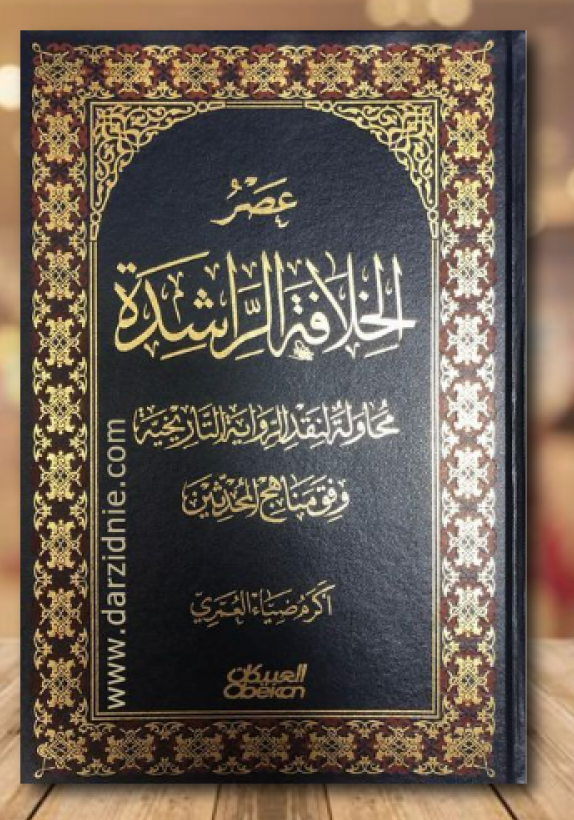 عَصْرُ
الخِلَافَةِ الرَّاشِدَةِ
مُحَاوَلَةٌ لِنَقْدِ الرِّوَايَةِ التَّارِيخِيَّةِ
وَفْقَ مَنَاهِجِ المُحَدِّثِينَ
أكرم ضياء العُمَري
العبيكان
Obekan
www.darzidnie.com